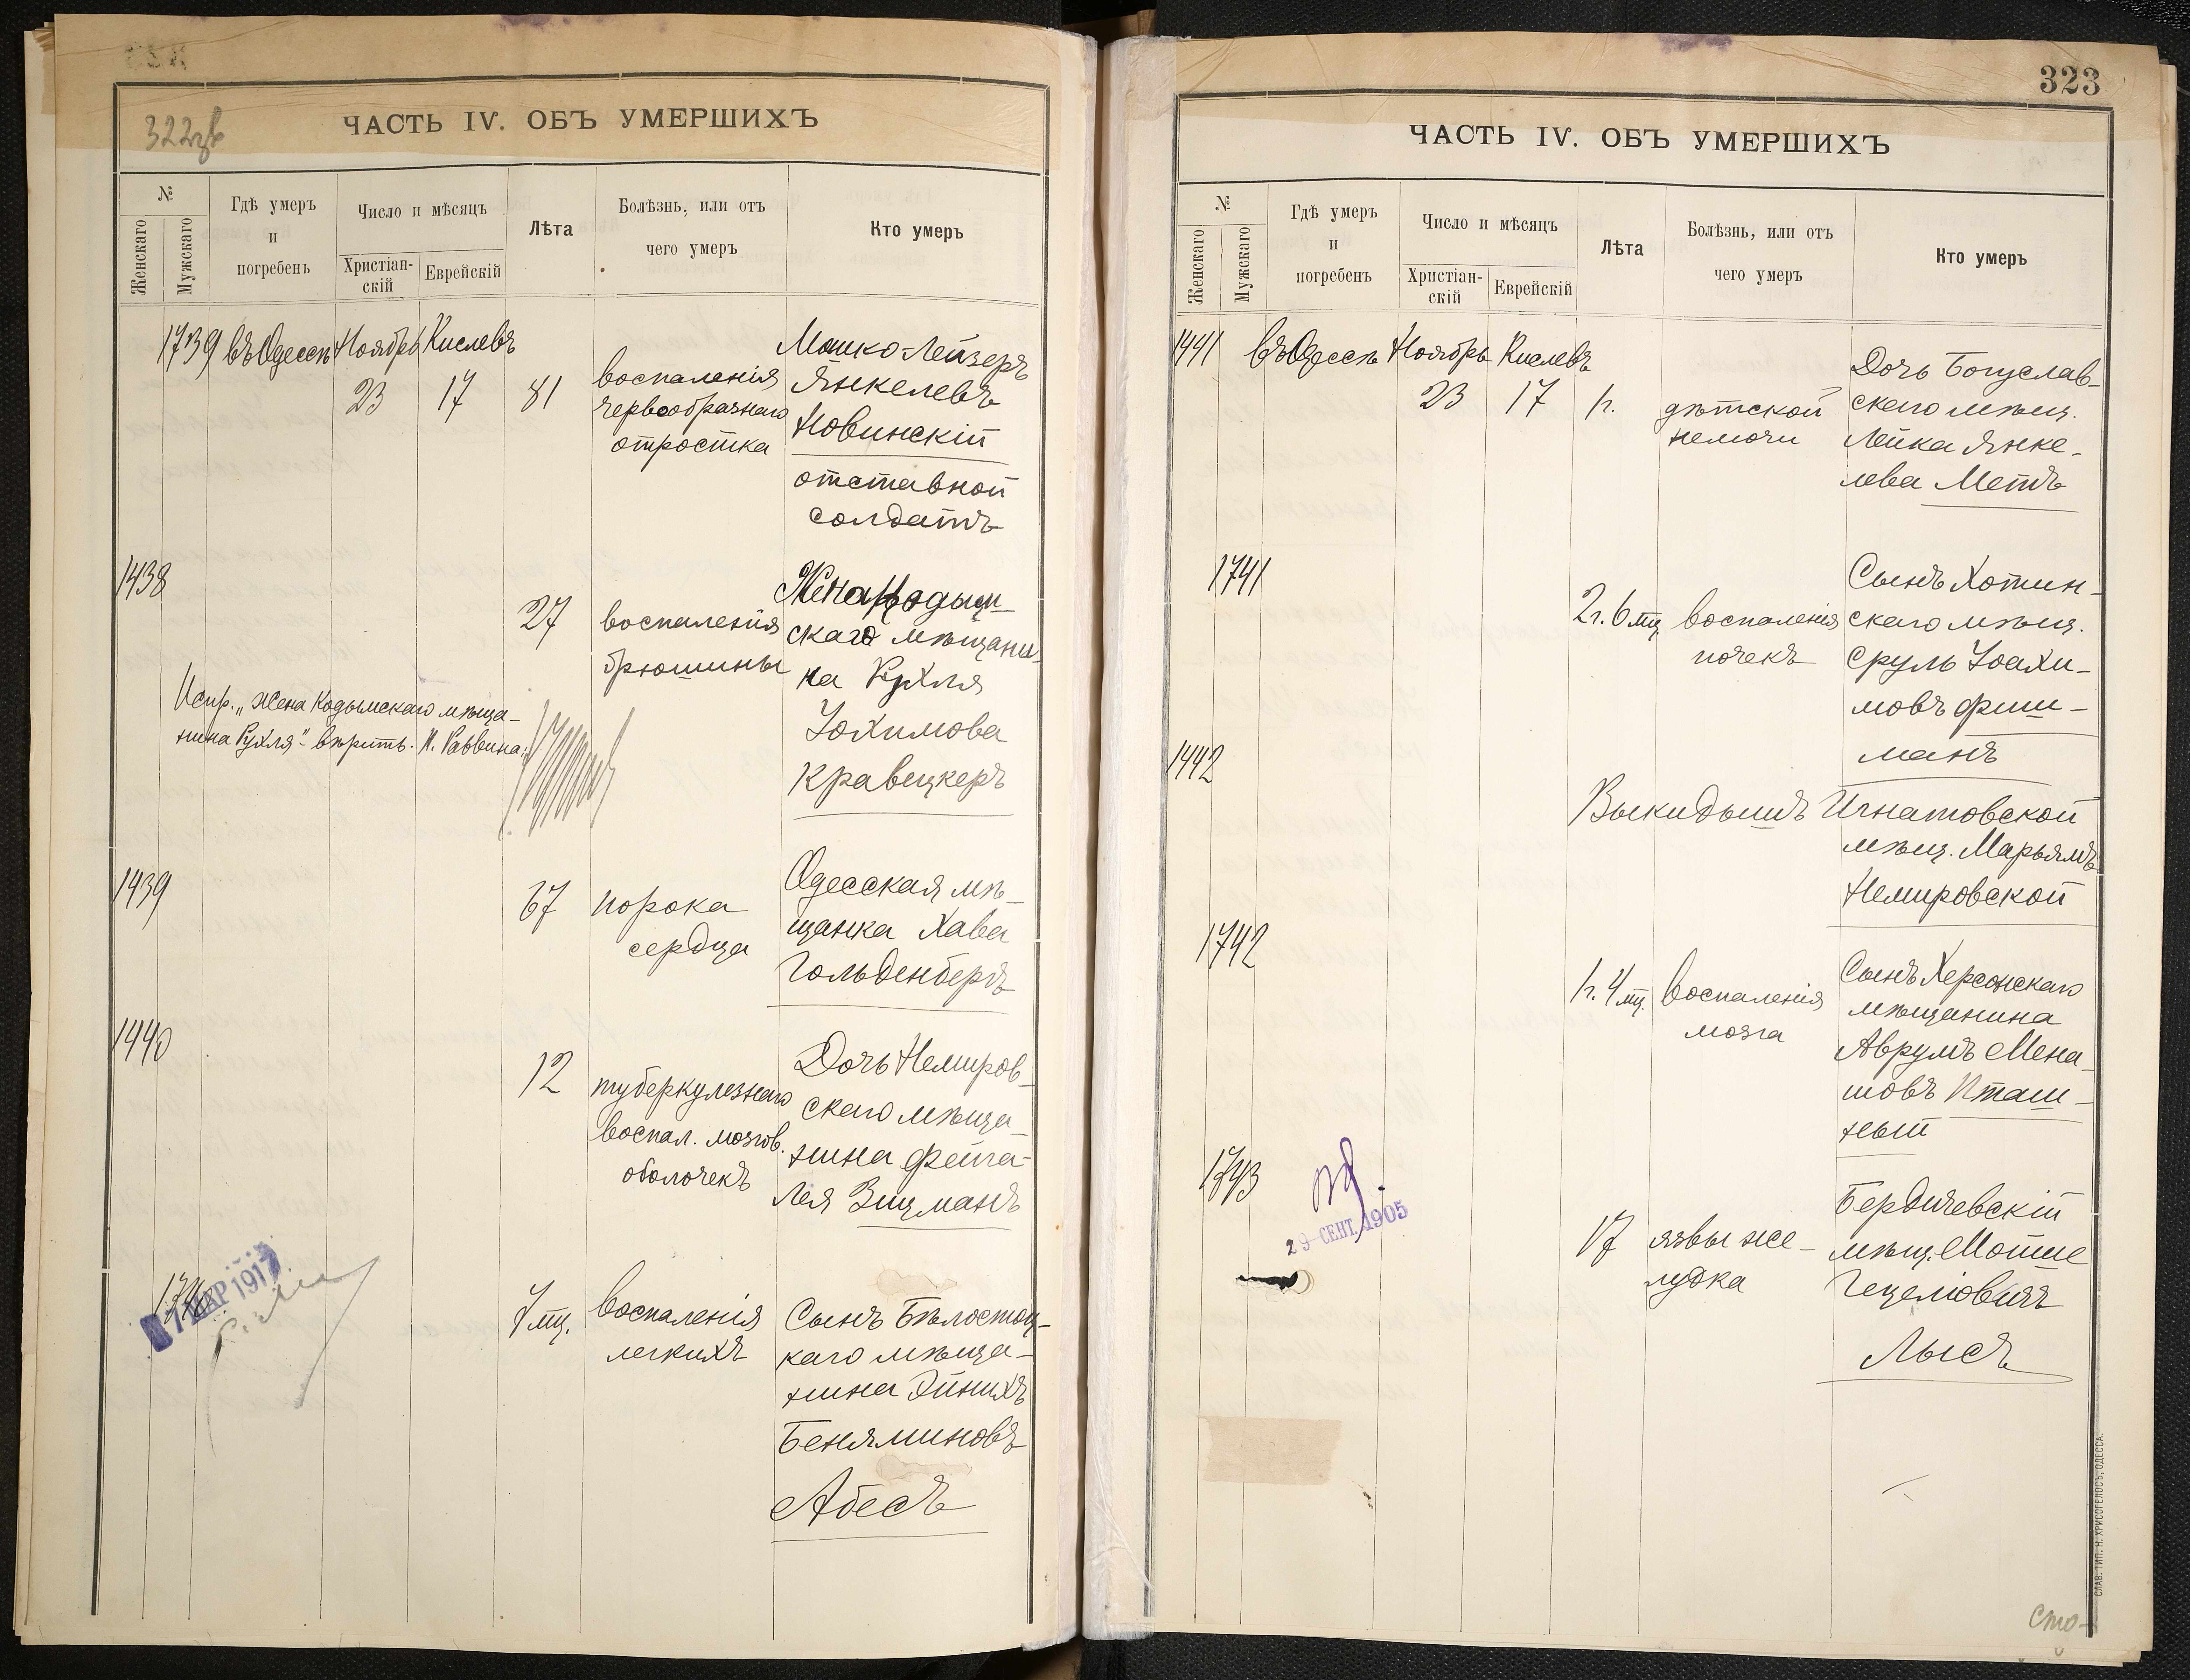 322
ЧАСТЬ IV. ОБЪ УМЕРШИХЪ
№
Женскаго
Мужскаго
Гдѣ умеръ
и
погребенъ
Число и мѣсяцъ
Христіан-
скій
Еврейскій
Лѣта
Болѣзнь, или отъ
чего умеръ
Кто умеръ
1739 въ Одессѣ Ноябрь Кислевъ
23 17 81
воспаленія
червообразнаго
отростка
Мошко-Лейзеръ
Янкелевъ
Новинскій
отставной
солдатъ
1438
27
воспаленія
брюшины
Жена Кодым-
скаго мѣщани-
на Рухля
Іохимова
Кравецкеръ
Испр. „Жена Кодымскаго мѣща-
нина Рухля" - вѣрить. И. Раввина:
1439
67
порока
сердца
Одесская мѣ-
щанка Хава
Гольденбергъ
1440
12
туберкулезнаго
воспал. мозгов.
оболочекъ
Дочь Немиров-
скаго мѣща-
нина Фейга-
Лея Зицманъ
7 МАР 1917
7 мц.
воспаленія
легкихъ
Сынъ Бѣлосток-
каго мѣща-
нина Эйнихъ
Беняминовъ
Абесъ
323
ЧАСТЬ IV. ОБЪ УМЕРШИХЪ
№
Женскаго
Мужскаго
Гдѣ умеръ
и
погребенъ
Число и мѣсяцъ
Христіан-
скій
Еврейскій
Лѣта
Болѣзнь, или отъ
чего умеръ
Кто умеръ
1441 въ Одессѣ Ноябрь Кислевъ
23 17 1г.
дѣтской
немочи
Дочь Богуслав-
скаго мѣщ.
Лейка Янке-
лева Метъ
1741
2г. 6 мц.
воспаленія
почекъ
Сынъ Хотин-
скаго мѣщ.
Сруль Іоахи-
мовъ Фиш-
манъ
1442
Выкидышъ Игнатовской
мѣщ. Марьямъ
Немировской
1742
1г. 4 мц.
воспаленія
мозга
Сынъ Херсонскаго
мѣщанина
Аврумъ Мена-
шовъ Пташ-
ный
1743
29 СЕНТ. 1905
17
язвы же-
лудка
Бердичевскій
мѣщ. Мотше
Гецеліовичъ
Лысъ
СЛАВ. ТИП. Н. ХРИСОГЕЛОСЪ, ОДЕССА.
Сто-